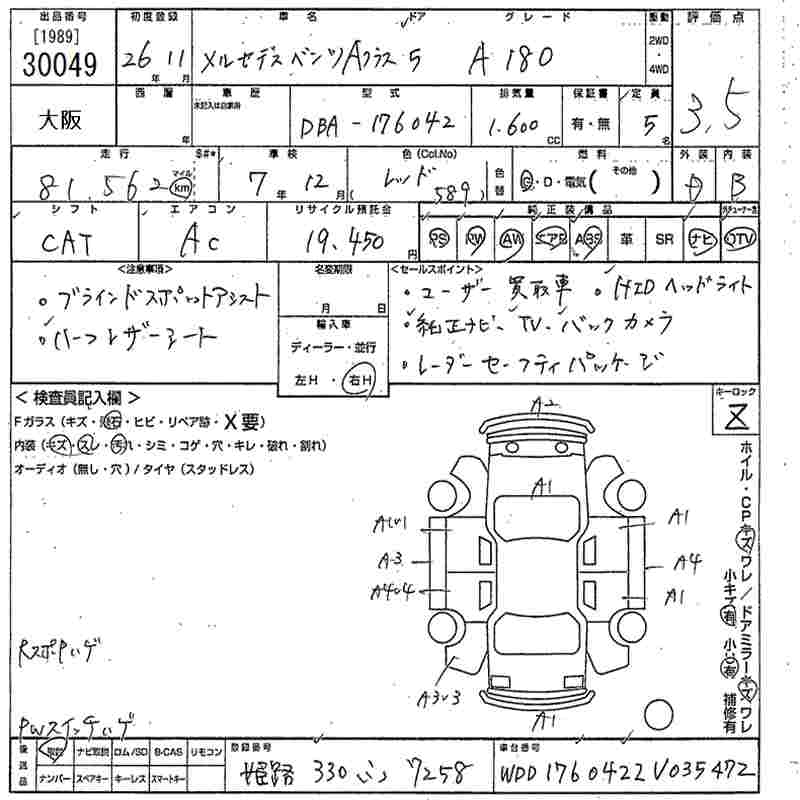 出品番号 初度登録 車名 ドア グレード 駆動 評価点
[1989]
30049 26年 11月 メルセデスベンツ Aクラス 5 A 180 2WD 4WD 3.5
大阪 西暦 年 車歴 未記入は自家用 型式 DBA-176042 排気量 1.600 CC 保証書 有・無 定員 5名
走行 S#* 車検 色(Col.No) 燃料 外装 内装
81,562 マイル km 7年 12月 レッド (589) 色替 G・D・電気(その他) D B
シフト エアコン リサイクル預託金 純正装備品 外チューナー含
CAT AC 19.450円 PS PW AW エアB ABS 革 SR ナビ TV
<注意事項> 名変期限 <セールスポイント>
・ブラインドスポットアシスト 月 日 ・ユーザー買取車 ・HIDヘッドライト
・ハーフレザーシート 輸入車 ・純正ナビ、TV、バックカメラ
ディーラー・並行 ・レーダーセーフティパッケージ
左H・右H
<検査員記入欄> キーロック
Fガラス(キズ・飛石・ヒビ・リペア跡・X要)
内装(キズ・スレ・汚れ・シミ・コゲ・穴・キレ・破れ・割れ)
オーディオ(無し・穴)/タイヤ(スタッドレス)
A2
A1
A1 A1
A3 A4
A4 A1
A3
A1
ホイル・CPキズワレ/ドアミラーキズワレ
小キズ有 小凹有 補修有
後送品 取説 ナビ取説 ロム/SD B-CAS リモコン 登録番号 車台番号
ナンバー スペアキー キーレス スマートキー 姫路 330 7258 WDD1760422V035472